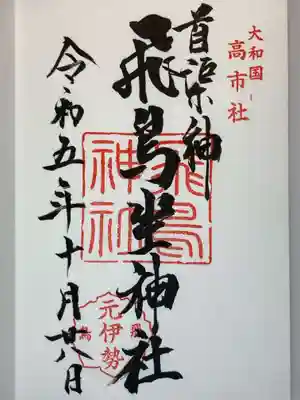 大和国
高市社
首渠神
飛鳥坐神社
令和五年十月廿八日
飛鳥
神社
飛鳥
元伊勢